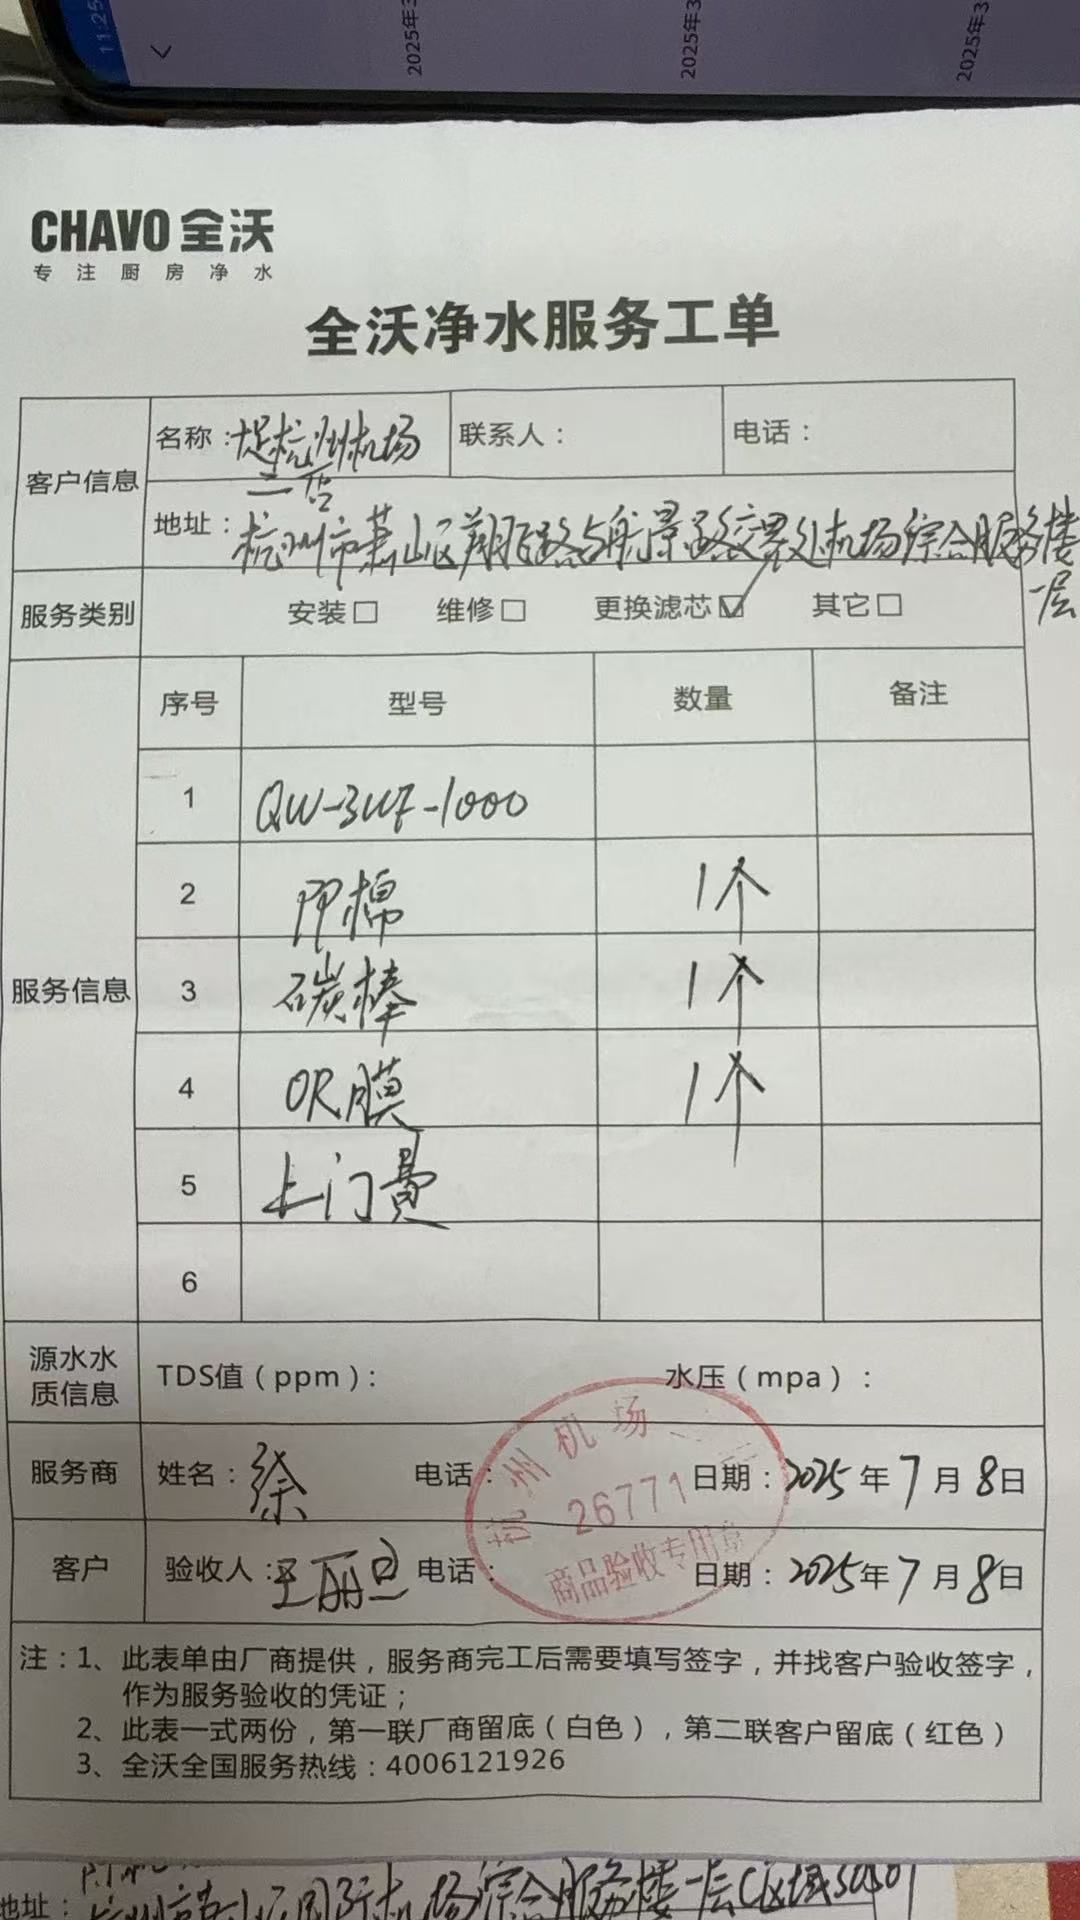 11:25
2025年3
2025年3
2025年3
CHAVO 全沃
专注厨房净水
全沃净水服务工单
客户信息
名称：杭州机场
二店
联系人：
电话：
地址：杭州市萧山区翔飞路与航景路交界处机场综合服务楼
一层
服务类别
安装□ 维修□ 更换滤芯☑ 其它□
服务信息
序号 型号 数量 备注
1 QW-3UF-1000
2 PP棉 1个
3 碳棒 1个
4 OR膜 1个
5 上门费
6
源水水质信息
TDS值（ppm）： 水压（mpa）：
服务商 姓名：徐 电话： 日期：2025年7月8日
客户 验收人：王丽 电话： 日期：2025年7月8日
杭州机场
26771
商品验收专用章
注：1、此表单由厂商提供，服务商完工后需要填写签字，并找客户验收签字，
作为服务验收的凭证；
2、此表一式两份，第一联厂商留底（白色），第二联客户留底（红色）
3、全沃全国服务热线：4006121926
地址：杭州市萧山区机场综合服务楼一层C区域